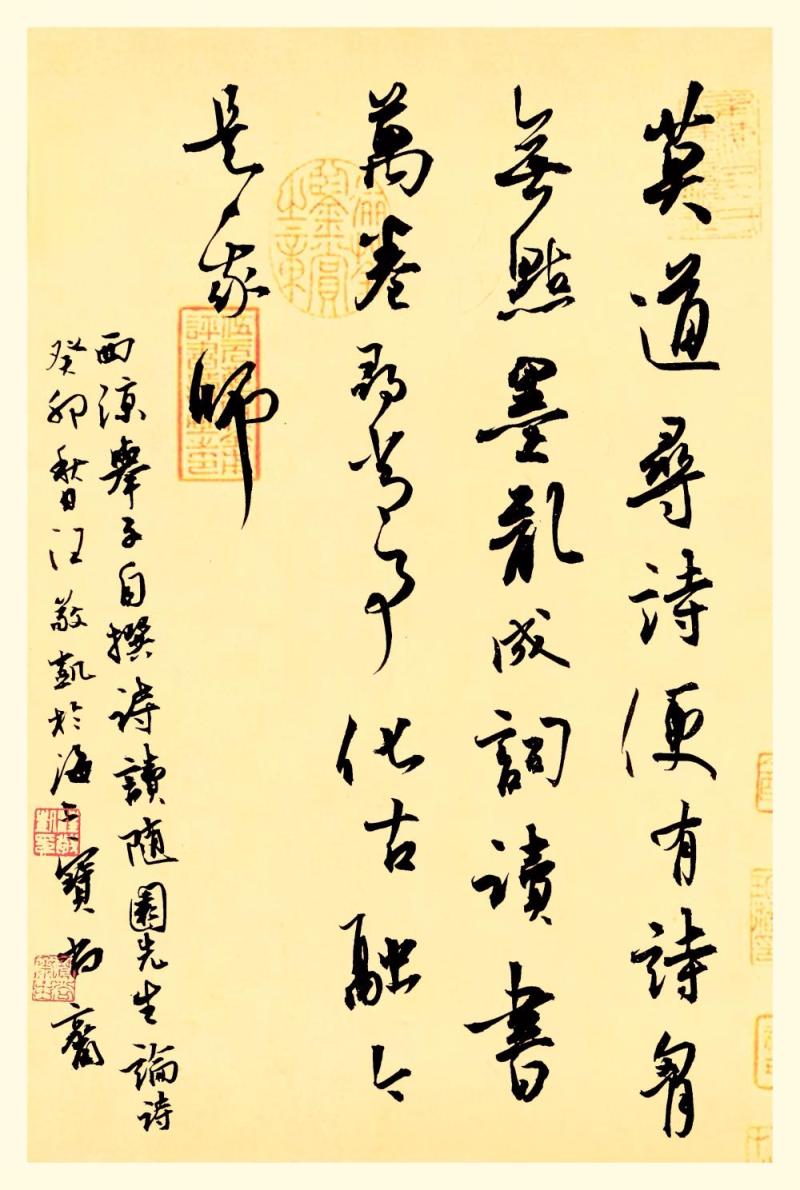 莫道尋詩便有詩胷
無點墨亂成詞讀書
萬卷尋常事化古融今
是我師
西涼舉子自撰詩讀隨園先生論詩
癸卯秋日汪敬凱於海上寶尚齋